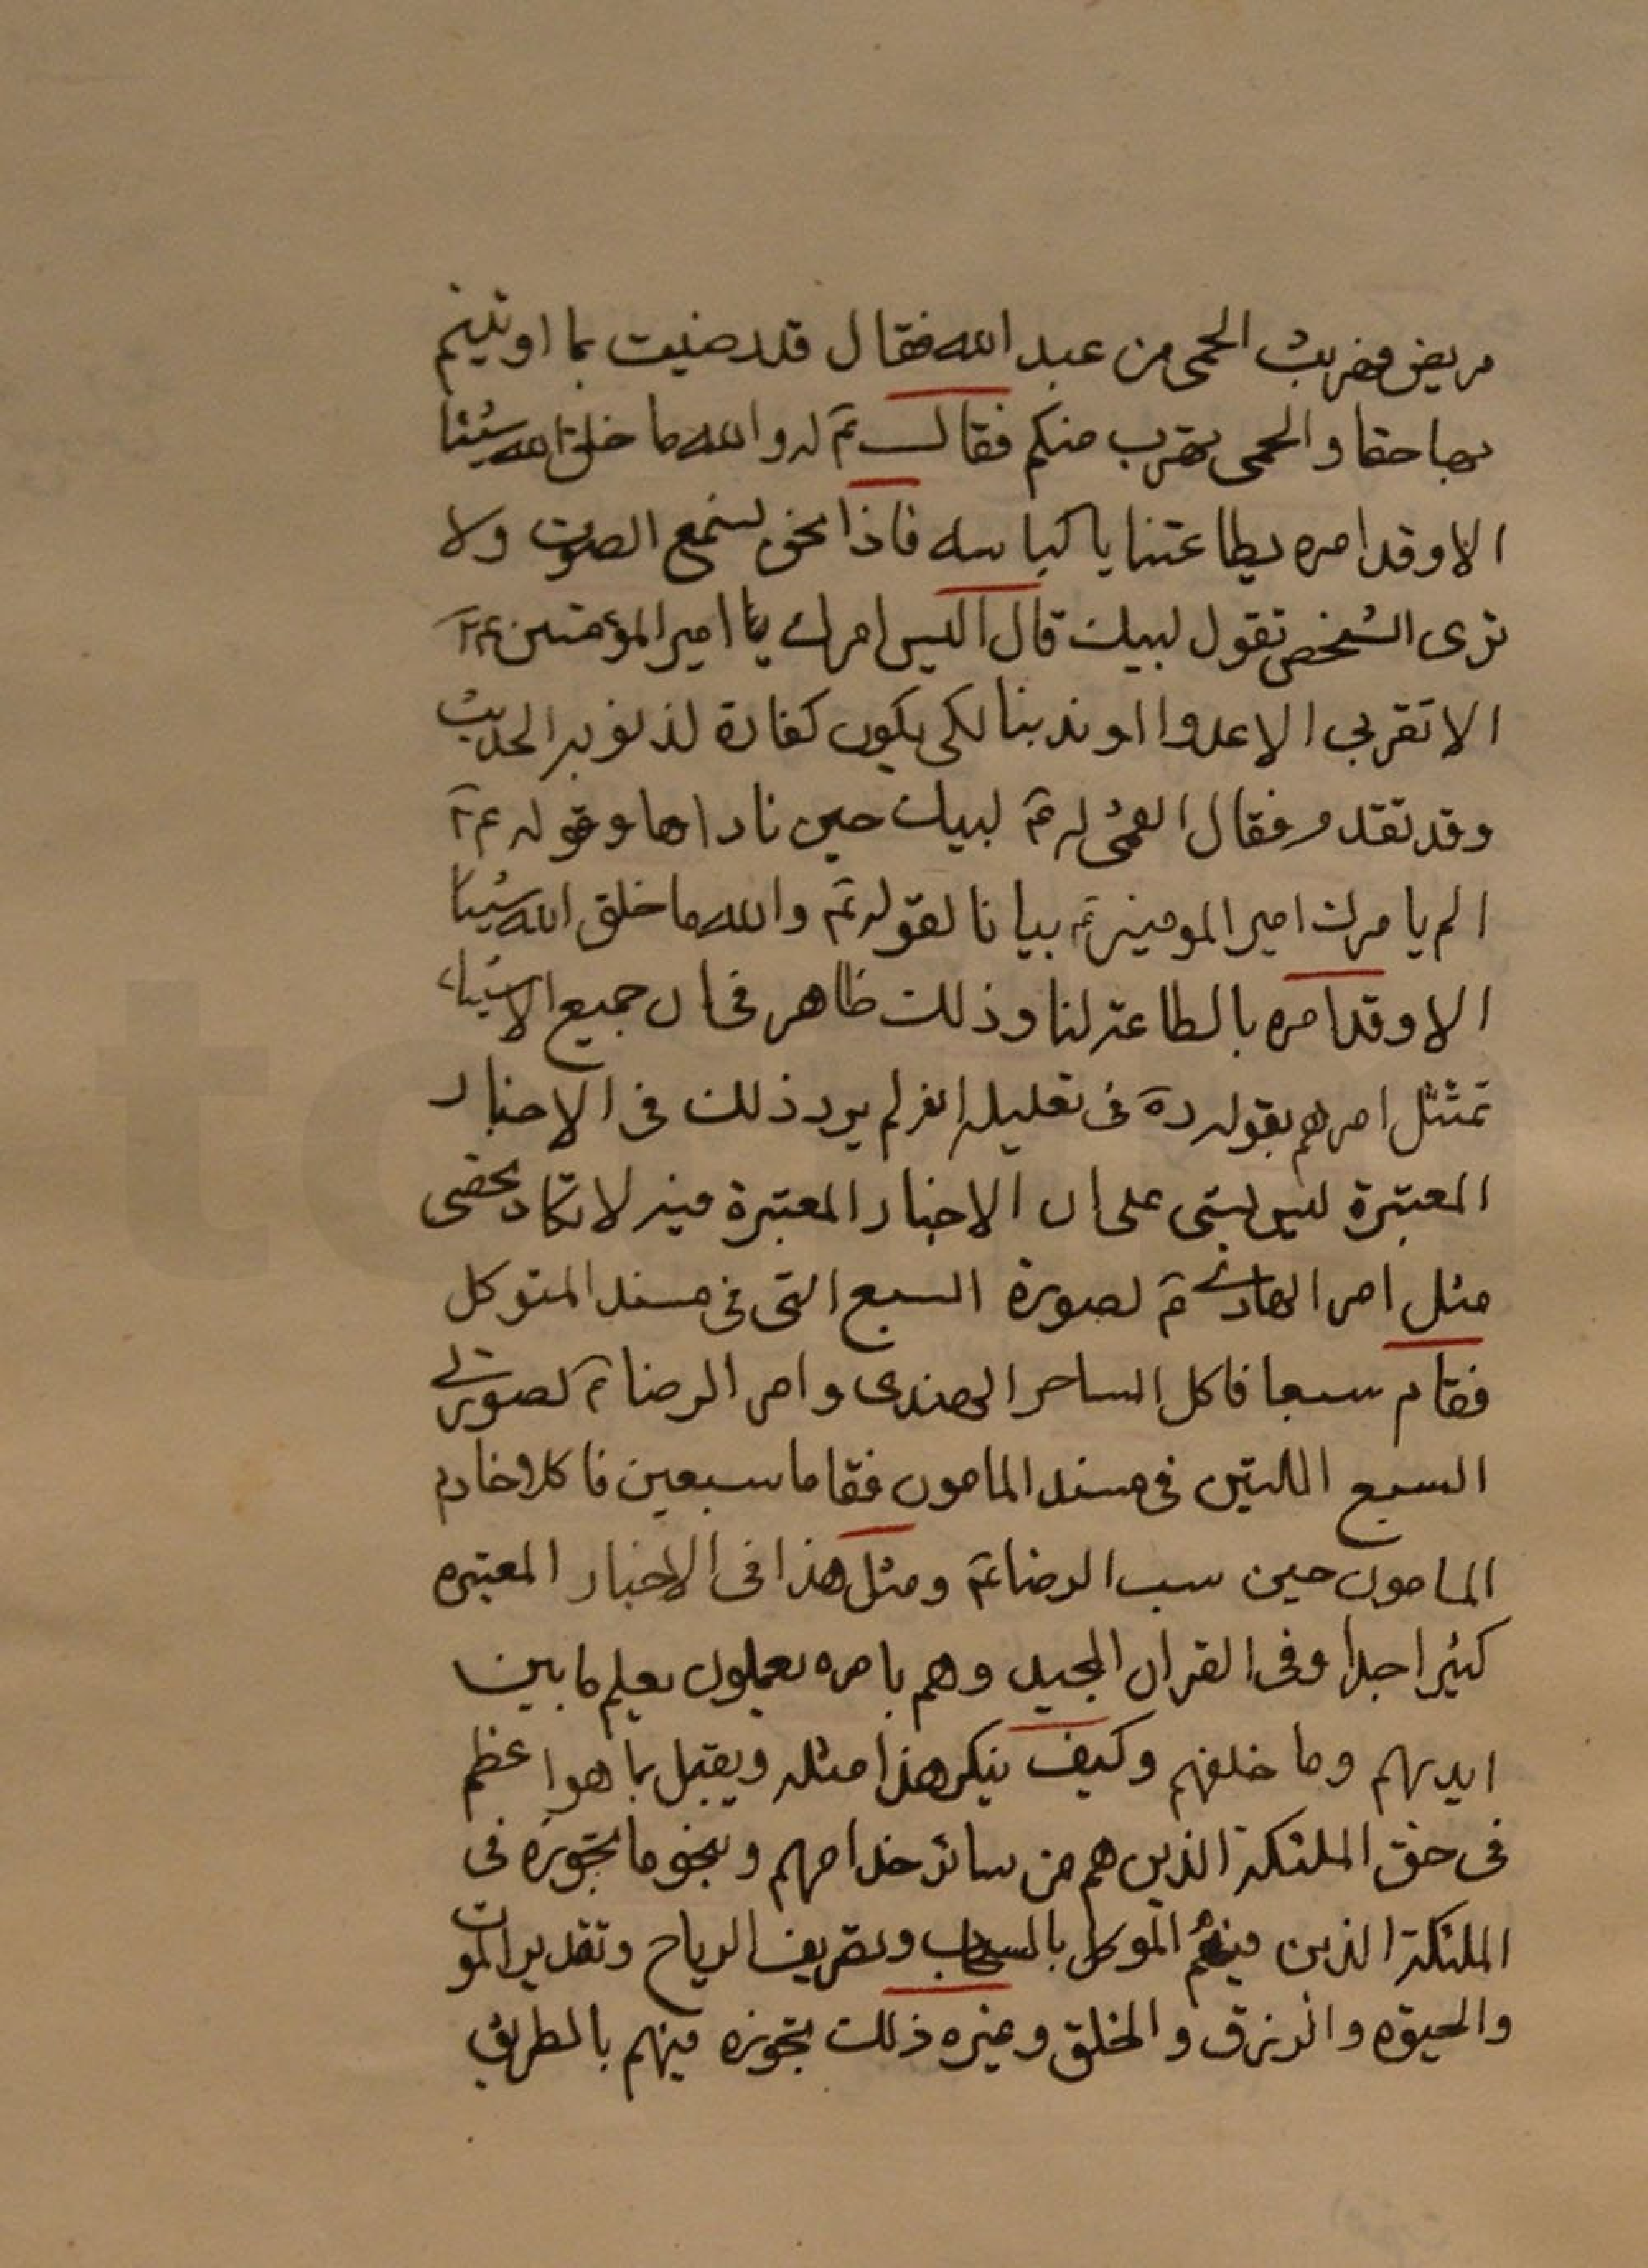 مريض فهربت الحمى من عبد الله فقال قد رضيت بما اوتيتم
بها حقا و الحمى تهرب منكم فقال ع له والله ما خلق الله شيئا
الا وقد امره بطاعتنا يا كباسه فاذا نحن نسمع الصوت ولا
نرى الشخص تقول لبيك قال اليس امرك يا امير المؤمنين ع
الا تقربي الا عدوا او مذنبا لكي يكون كفارة لذنوبه الحديث
وقد تقدم فقال الحمى له ع لبيك حين ناداها وقوله ع
الم يامرك امير المومنين ع بيانا لقوله ع والله ما خلق الله شيئا
الا وقد امره بالطاعة لنا وذلك ظاهر في ان جميع الاشياء
تمتثل امرهم بقوله ره في تعليله انه لم يرد ذلك في الاخبار
المعتبرة ليس بشي على ان الاخبار المعتبرة فيه لا تكاد تحصى
مثل امر الهادي ع لصورة السبع التي في مسند المتوكل
فقام سبعا فاكل الساحر الهندى و امر الرضا ع لصورتي
السبع اللتين في مسند المامون فقاما سبعين فاكلا خادم
المامون حين سب الرضا ع ومثل هذا في الاخبار المعتبره
كثيرا جدا وفي القران المجيد وهم بامره يعملون يعلم ما بين
ايديهم وما خلفهم وكيف ينكر هذا مثله ويقبل بما هو اعظم
في حق الملئكة الذين هم من سائر خدامهم و نحو ما تجوزه في
الملئكة الذين فيهم الموكل بالسحاب و تصريف الرياح وتقدير الموت
والحيوه و الرزق و الخلق وغيره ذلك تجوزه فيهم بالطريق